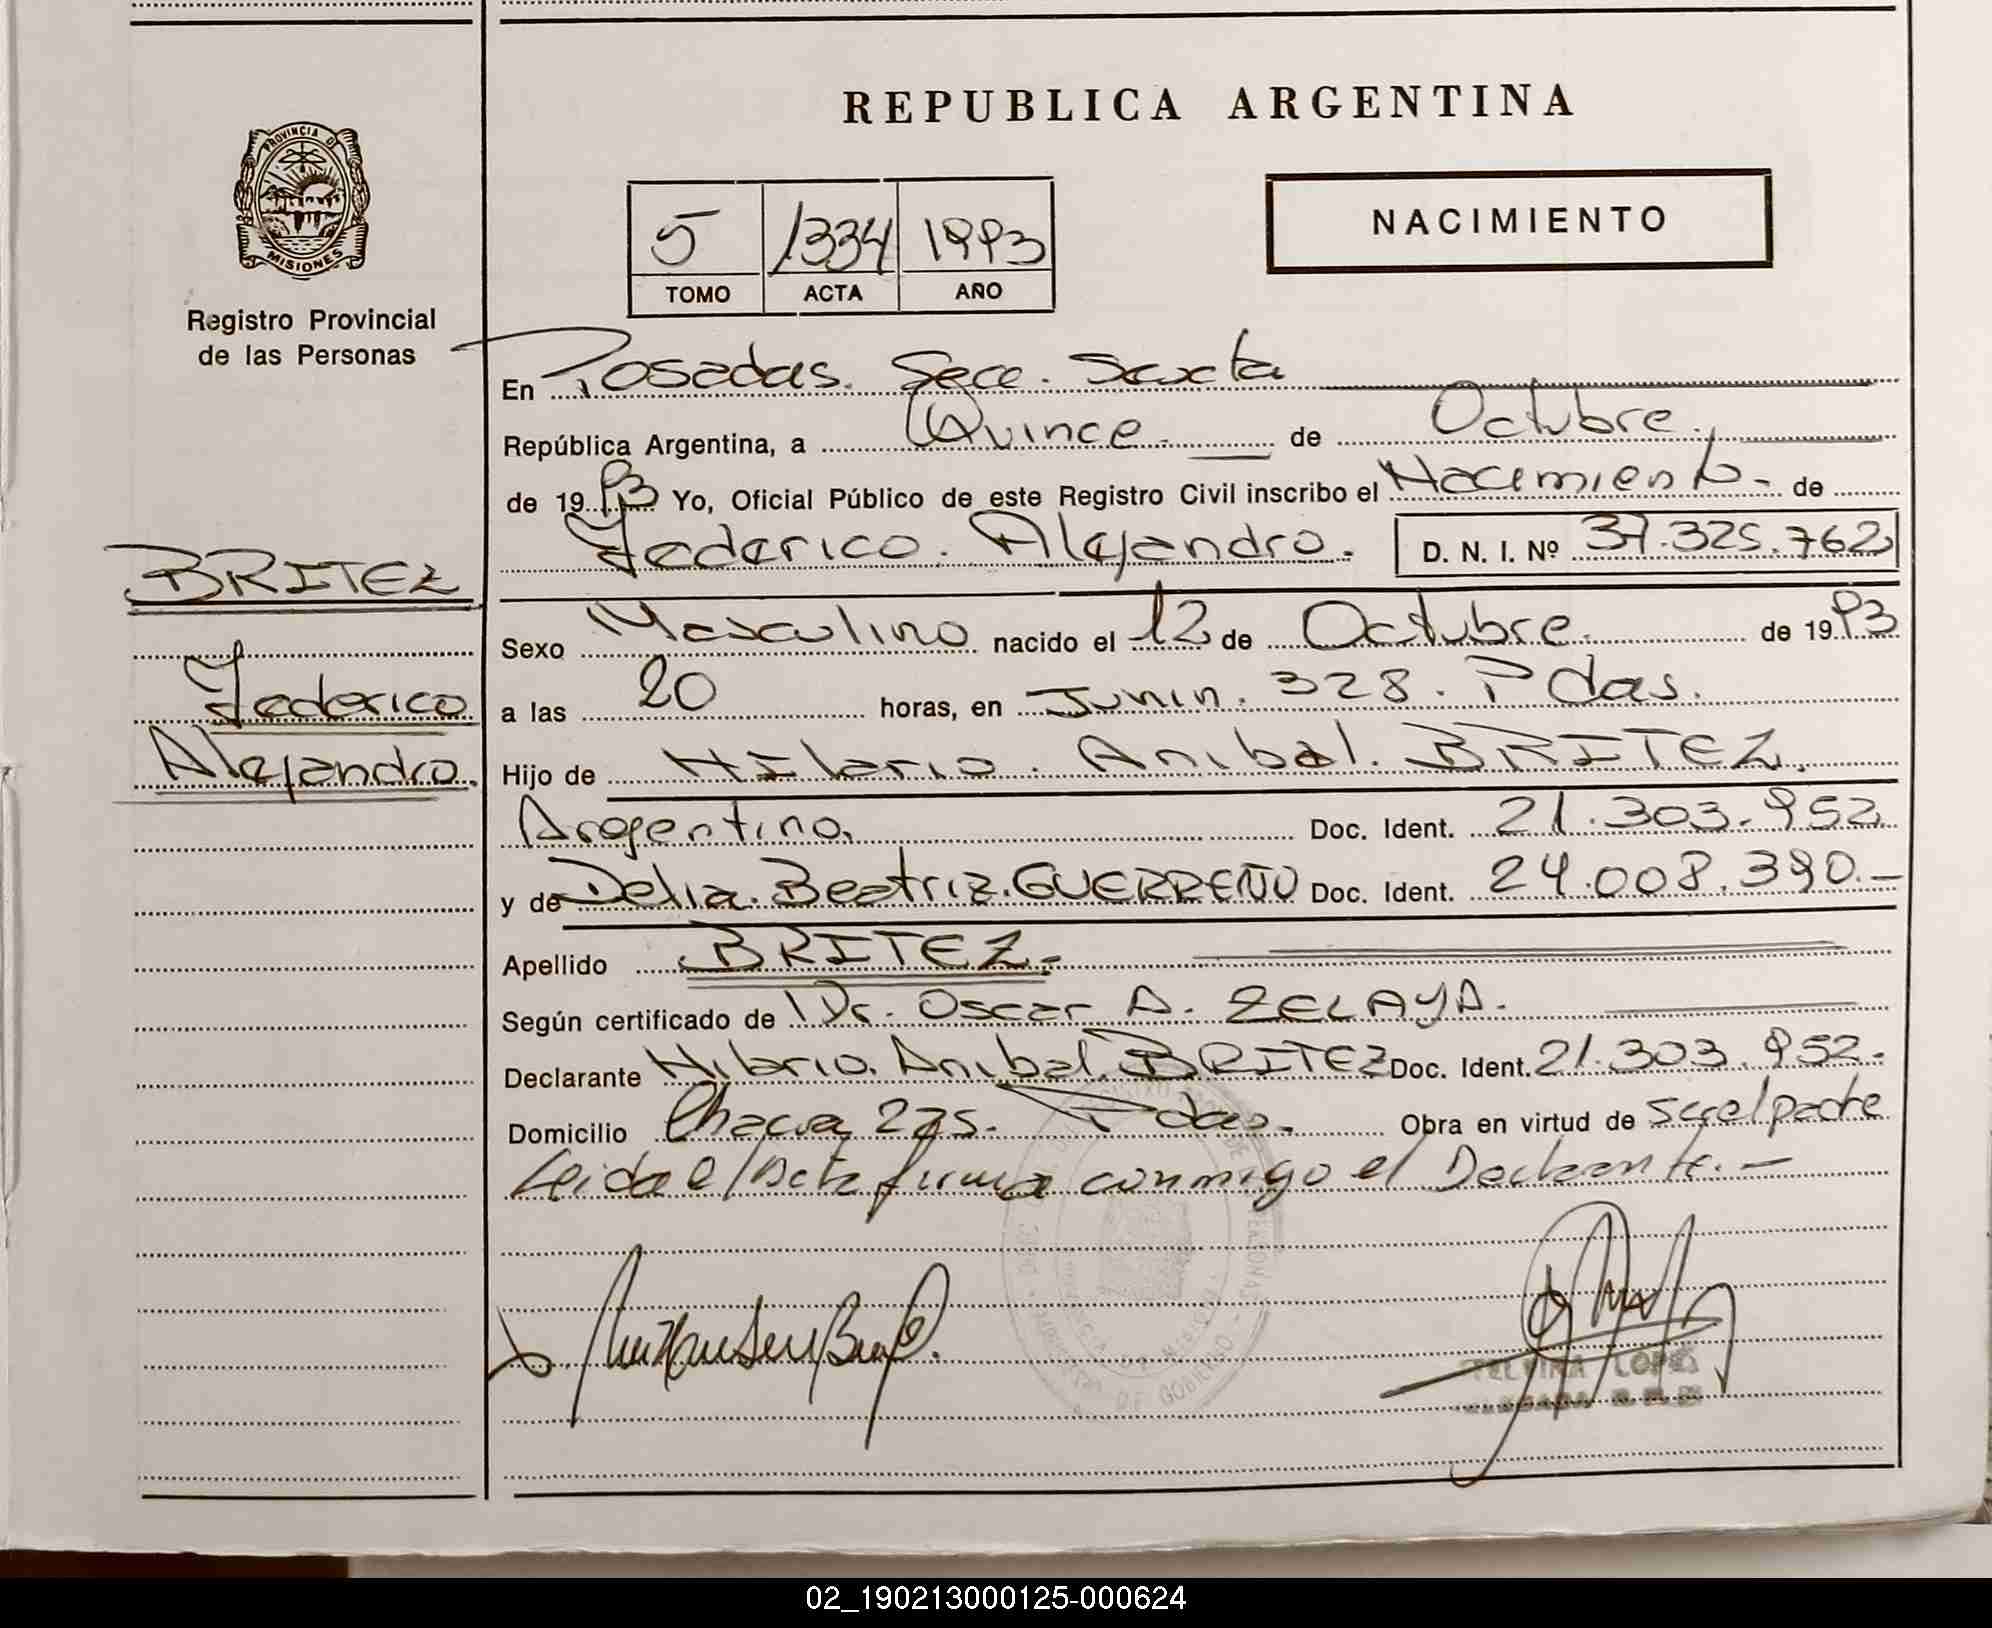 REPUBLICA ARGENTINA
PROVINCIA DE
MISIONES
Registro Provincial
de las Personas
5 1334 1993
TOMO ACTA AÑO
NACIMIENTO
En Posadas. Secc. Sexta
República Argentina, a Quince de Octubre.
de 1993 Yo, Oficial Público de este Registro Civil inscribo el Nacimiento - de
Federico. Alejandro. D. N. I. Nº 37.325.762
BRITEZ
Federico
Alejandro.
Sexo Masculino nacido el 12 de Octubre. de 1993
a las 20 horas, en Junin. 328. Pdas.
Hijo de Hilario. Anibal. BRITEZ.
Argentino. Doc. Ident. 21.303.952
y de Delia. Beatriz. GUERREÑO Doc. Ident. 24.008.390.-
Apellido BRITEZ-
Según certificado de Dr. Oscar A. ZELAYA.
Declarante Hilario. Anibal. BRITEZ Doc. Ident. 21.303.952.
Domicilio Chacra 225. Pdas. Obra en virtud de
Leida el Acta firma conmigo el Declarante. -
TELVINA LOPEZ
02_190213000125-000624